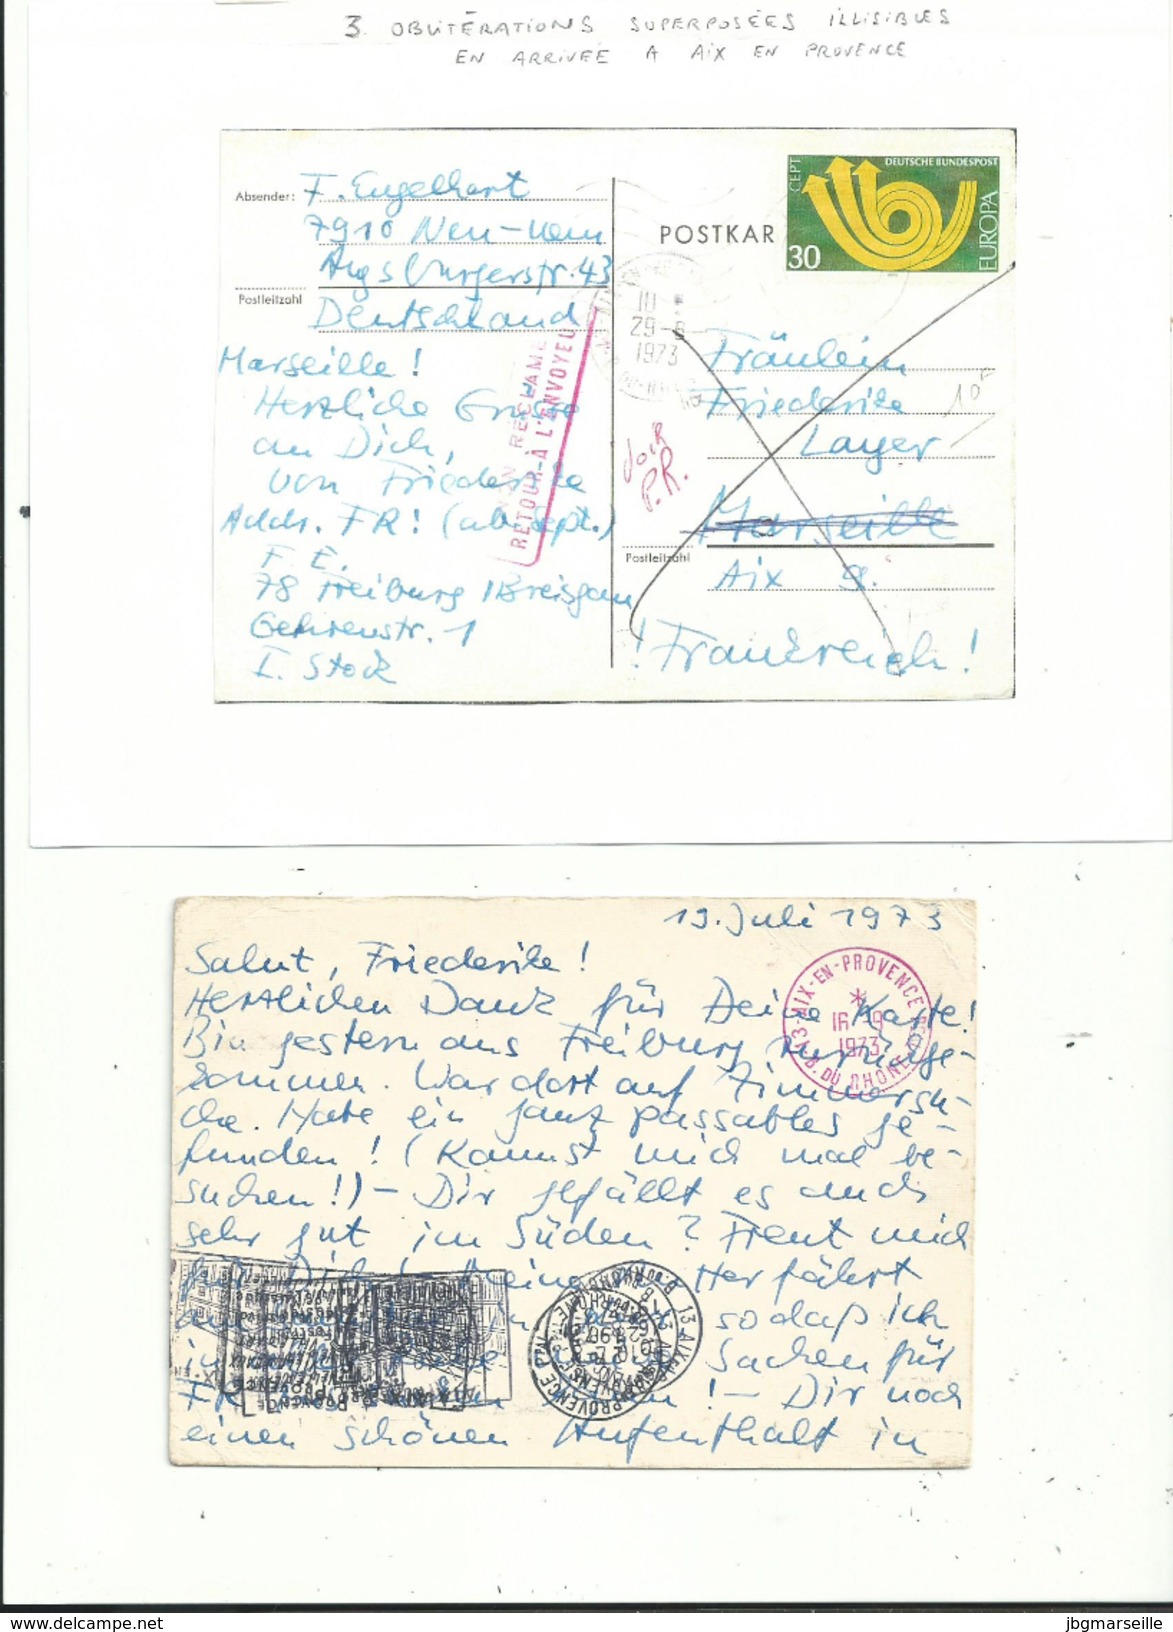 3 OBLITÉRATIONS SUPERPOSÉES ILLISIBLES
EN ARRIVÉE A AIX EN PROVENCE
Absender: F. Engelhart
7910 Neu-
Augsburgerstr. 43
Postleitzahl
Deutschland
POSTKAR
CEPT
DEUTSCHE BUNDESPOST
EUROPA
30
10
29-6
1973
NON RÉCLAMÉ
RETOUR-À L'ENVOYEU
Voir
P.R.
10F
Fräulein
Friederike
Layer
Marseille
Postleitzahl
Aix
! Frankreich!
Marseille!
Herzliche Grüsse
an Dich,
von Friederike
Addr. FR! (ab Sept.)
F. E.
78 Freiburg /Breisgau
Gehrenstr. 1
I. Stock
19. Juli 1973
Salut, Friederike!
Herzlichen Dank für Deine Karte!
Bin gestern aus Freiburg zurückge-
kommen. War dort auf Zimmersu-
che. Habe ein ganz passables ge-
funden! (Kannst mich mal be-
suchen!) – Dir gefällt es auch
sehr gut im Süden? Freut mich
für Dich! Herfährt
sodaß ich
in Sachen für
FR ! – Dir noch
einen schönen Aufenthalt in
13-AIX-EN-PROVENCE
*
16 -9
1973
B. DU RHONE
13 AIX
PROVENCE
jbgmarseille